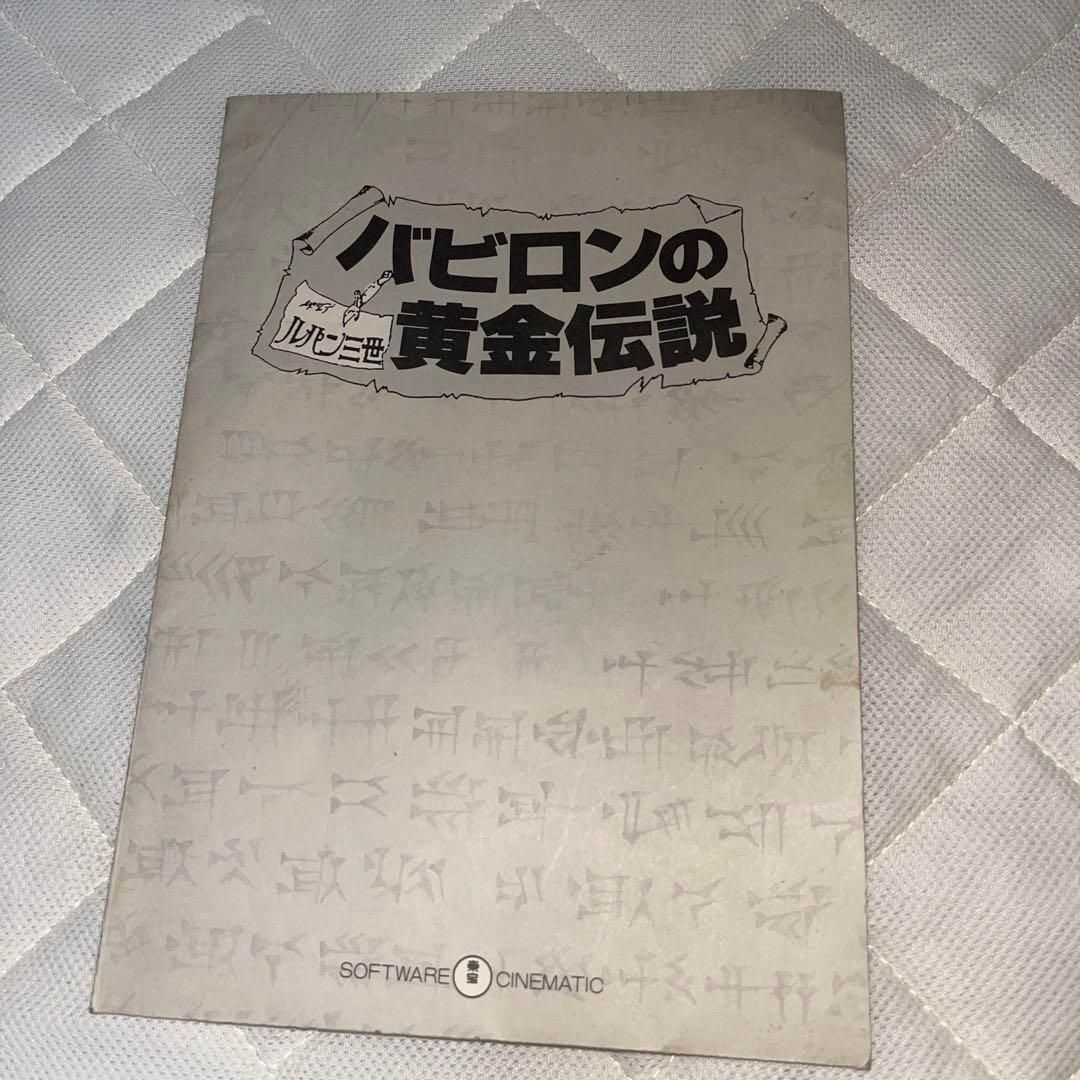 バビロンの
黄金伝説
ルパン三世
SOFTWARE 東宝 CINEMATIC